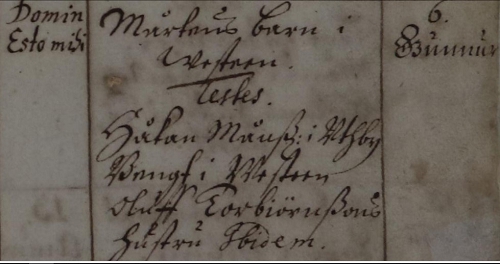 Domin
Esto mihi
Mårtens barn i
Westeen.
Testes.
Håkan Månß: i Uthby
Bengt i Westeen
Oluff Torbiörnßons
hustru Ibidem.
6.
Gunnur